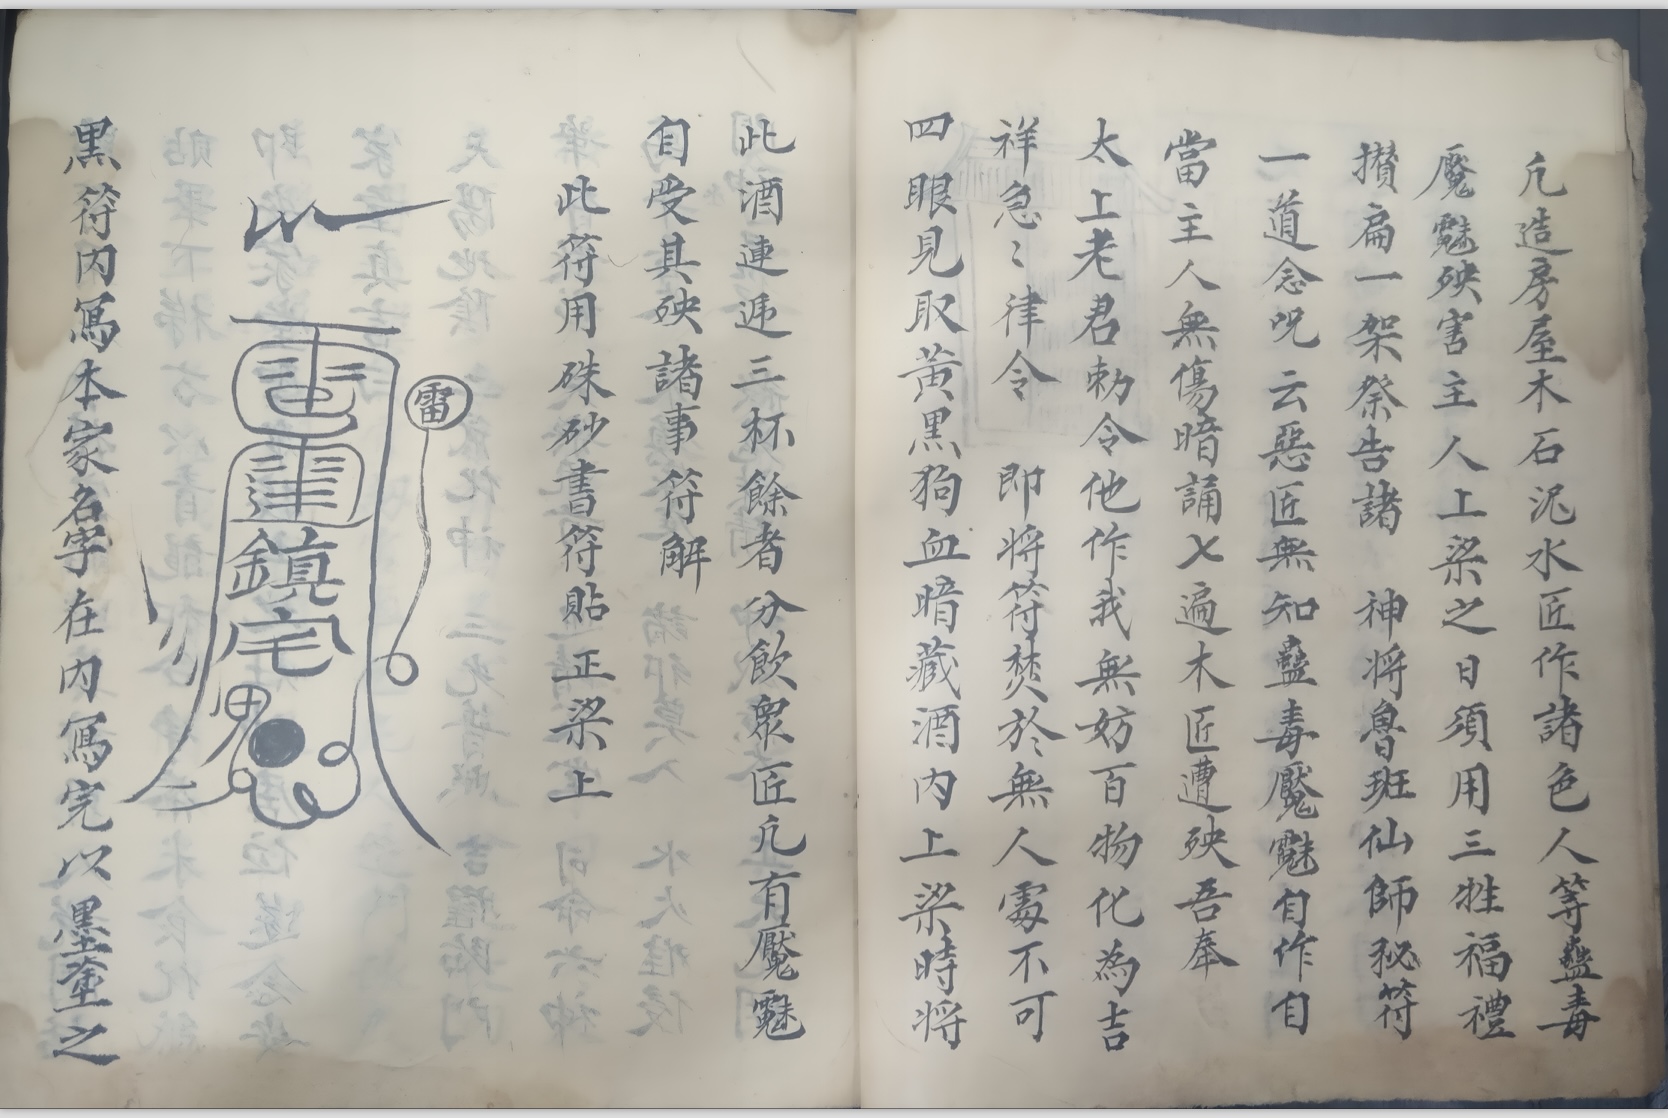 凢造房屋木石泥水匠作諸色人等蠱毒
魘魅殃害主人上梁之日須用三牲福禮
攅扁一架祭告諸 神将魯班仙師秘符
一道念咒云惡匠無知蠱毒魘魅自作自
當主人無傷暗誦七遍木匠遭殃吾奉
太上老君勅令他作我無妨百物化為吉
祥急〻律令 即将符焚於無人處不可
四眼見取黃黑狗血暗藏酒内上梁時将
此酒連遞三杯餘者分飲衆匠凢有魘魅
自受其殃諸事符解
此符用硃砂書符貼正梁上
雷
鎮宅
鬼
黒符内寫本家名字在内寫完以墨塗之